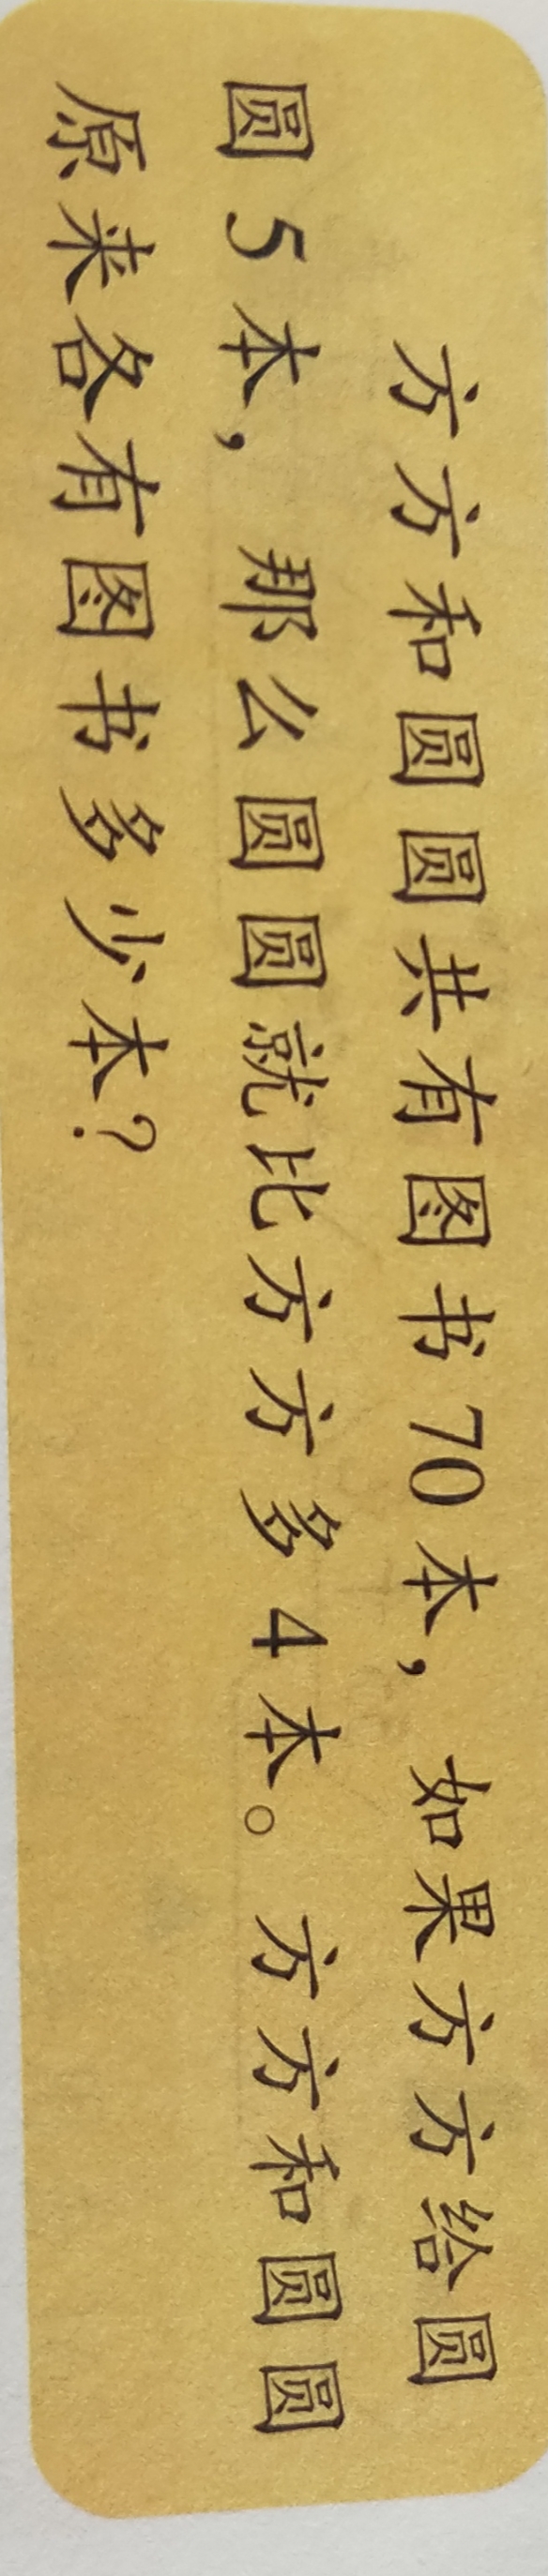 方方和圆圆共有图书70本，如果方方给圆
圆5本，那么圆圆就比方方多4本。方方和圆圆
原来各有图书多少本？